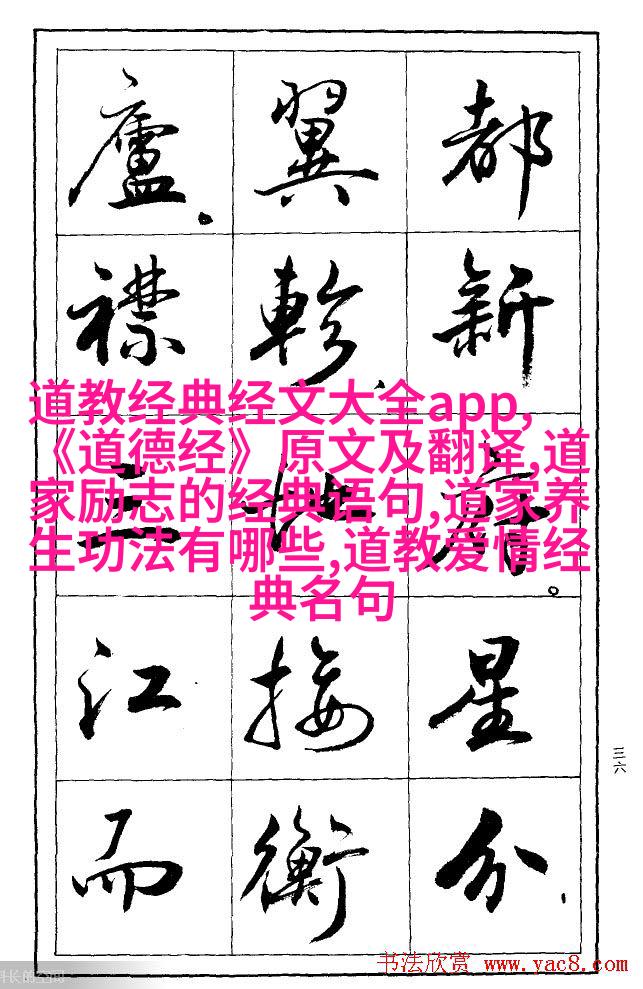 都新府。星分、
翼軫、地接衡
廬。襟三江而
道教经典经文大全app,
《道德经》原文及翻译,道
家励志的经典语句,道家养
生功法有哪些,道教爱情经
典名句
三六
书法欣赏 www.yac8.com
长的空间